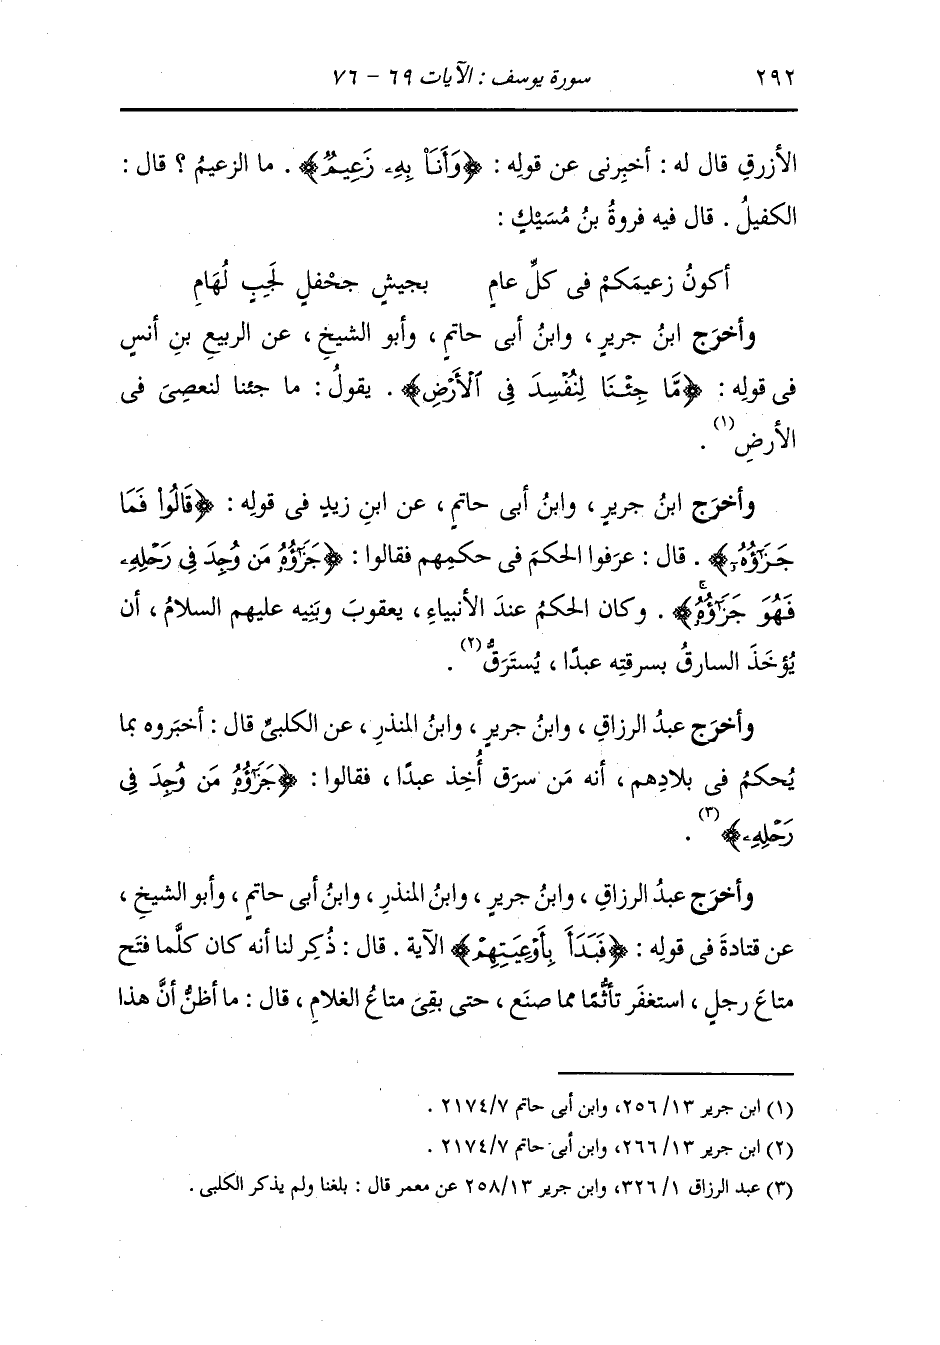 ٢٩٢ سورة يوسف : الآيات ٦٩ - ٧٦
الأزرقِ قال له : أخبِرنى عن قولِه : ﴿وَأَنَا۠ بِهِۦ زَعِيمٌ﴾ . ما الزعيمُ ؟ قال :
الكفيلُ . قال فيه فروةُ بنُ مُسَيْكٍ :
أكونُ زعيمَكمْ فى كلِّ عامٍ بجيشٍ جحْفلٍ لَجِبٍ لُهَامِ
وأخرَج ابنُ جريرٍ ، وابنُ أبى حاتمٍ ، وأبو الشيخِ ، عن الربيعِ بنِ أنسٍ
فى قولِه : ﴿مَّا جِئْنَا لِنُفْسِدَ فِى ٱلْأَرْضِ﴾ . يقولُ : ما جئنا لنعصِىَ فى
الأرضِ(١) .
وأخرَج ابنُ جريرٍ ، وابنُ أبى حاتمٍ ، عن ابنِ زيدٍ فى قولِه : ﴿قَالُوا۟ فَمَا
جَزَٰٓؤُهُۥٓ﴾ . قال : عرَفوا الحكمَ فى حكمِهم فقالوا : ﴿جَزَٰٓؤُهُۥ مَن وُجِدَ فِى رَحْلِهِۦ
فَهُوَ جَزَٰٓؤُهُۥ ۚ﴾ . وكان الحكمُ عندَ الأنبياءِ ، يعقوبَ وبَنِيه عليهم السلامُ ، أن
يُؤخَذَ السارقُ بسرقتِه عبدًا ، يُستَرَقُّ(٢) .
وأخرَج عبدُ الرزاقِ ، وابنُ جريرٍ ، وابنُ المنذرِ ، عن الكلبىِّ قال : أخبَروه بما
يُحكمُ فى بلادِهم ، أنه مَن سرَق أُخِذ عبدًا ، فقالوا : ﴿جَزَٰٓؤُهُۥ مَن وُجِدَ فِى
رَحْلِهِۦ﴾(٣) .
وأخرَج عبدُ الرزاقِ ، وابنُ جريرٍ ، وابنُ المنذرِ ، وابنُ أبى حاتمٍ ، وأبو الشيخِ ،
عن قتادةَ فى قولِه : ﴿فَبَدَأَ بِأَوْعِيَتِهِمْ﴾ الآية . قال : ذُكِر لنا أنه كان كلَّما فتَح
متاعَ رجلٍ ، استغفَر تأثُّمًا مما صنَع ، حتى بقِىَ متاعُ الغلامِ ، قال : ما أظنُّ أنَّ هذا
(١) ابن جرير ١٣/ ٢٥٦، وابن أبى حاتم ٢١٧٤/٧ .
(٢) ابن جرير ١٣/ ٢٦٦، وابن أبى حاتم ٢١٧٤/٧ .
(٣) عبد الرزاق ١/ ٣٢٦، وابن جرير ٢٥٨/١٣ عن معمر قال : بلغنا ولم يذكر الكلبى .